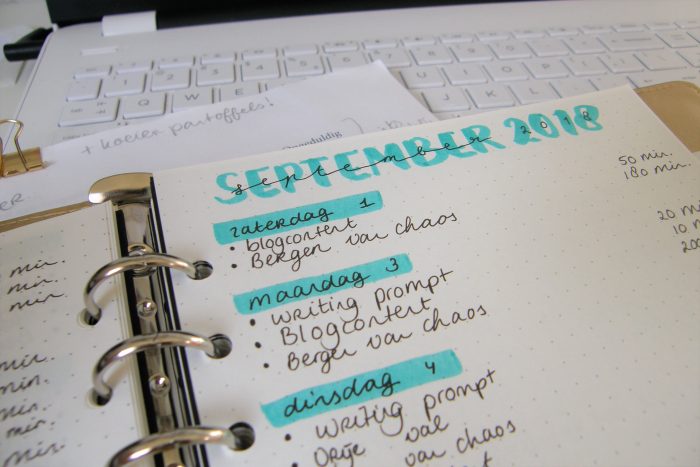 + koeier pantoffels!
SEPTEMBER 2018
september 2018
zaterdag 1
• blogcontent
• Bergen van chaos
50 min.
180 min.
maandag 3
• writing prompt
• Blogcontent
• Bergen van chaos
20 min
10 m
200
dinsdag 4
• writing prompt
van chaos
min.
min.
min.
min.
min.
min.
min.
min.